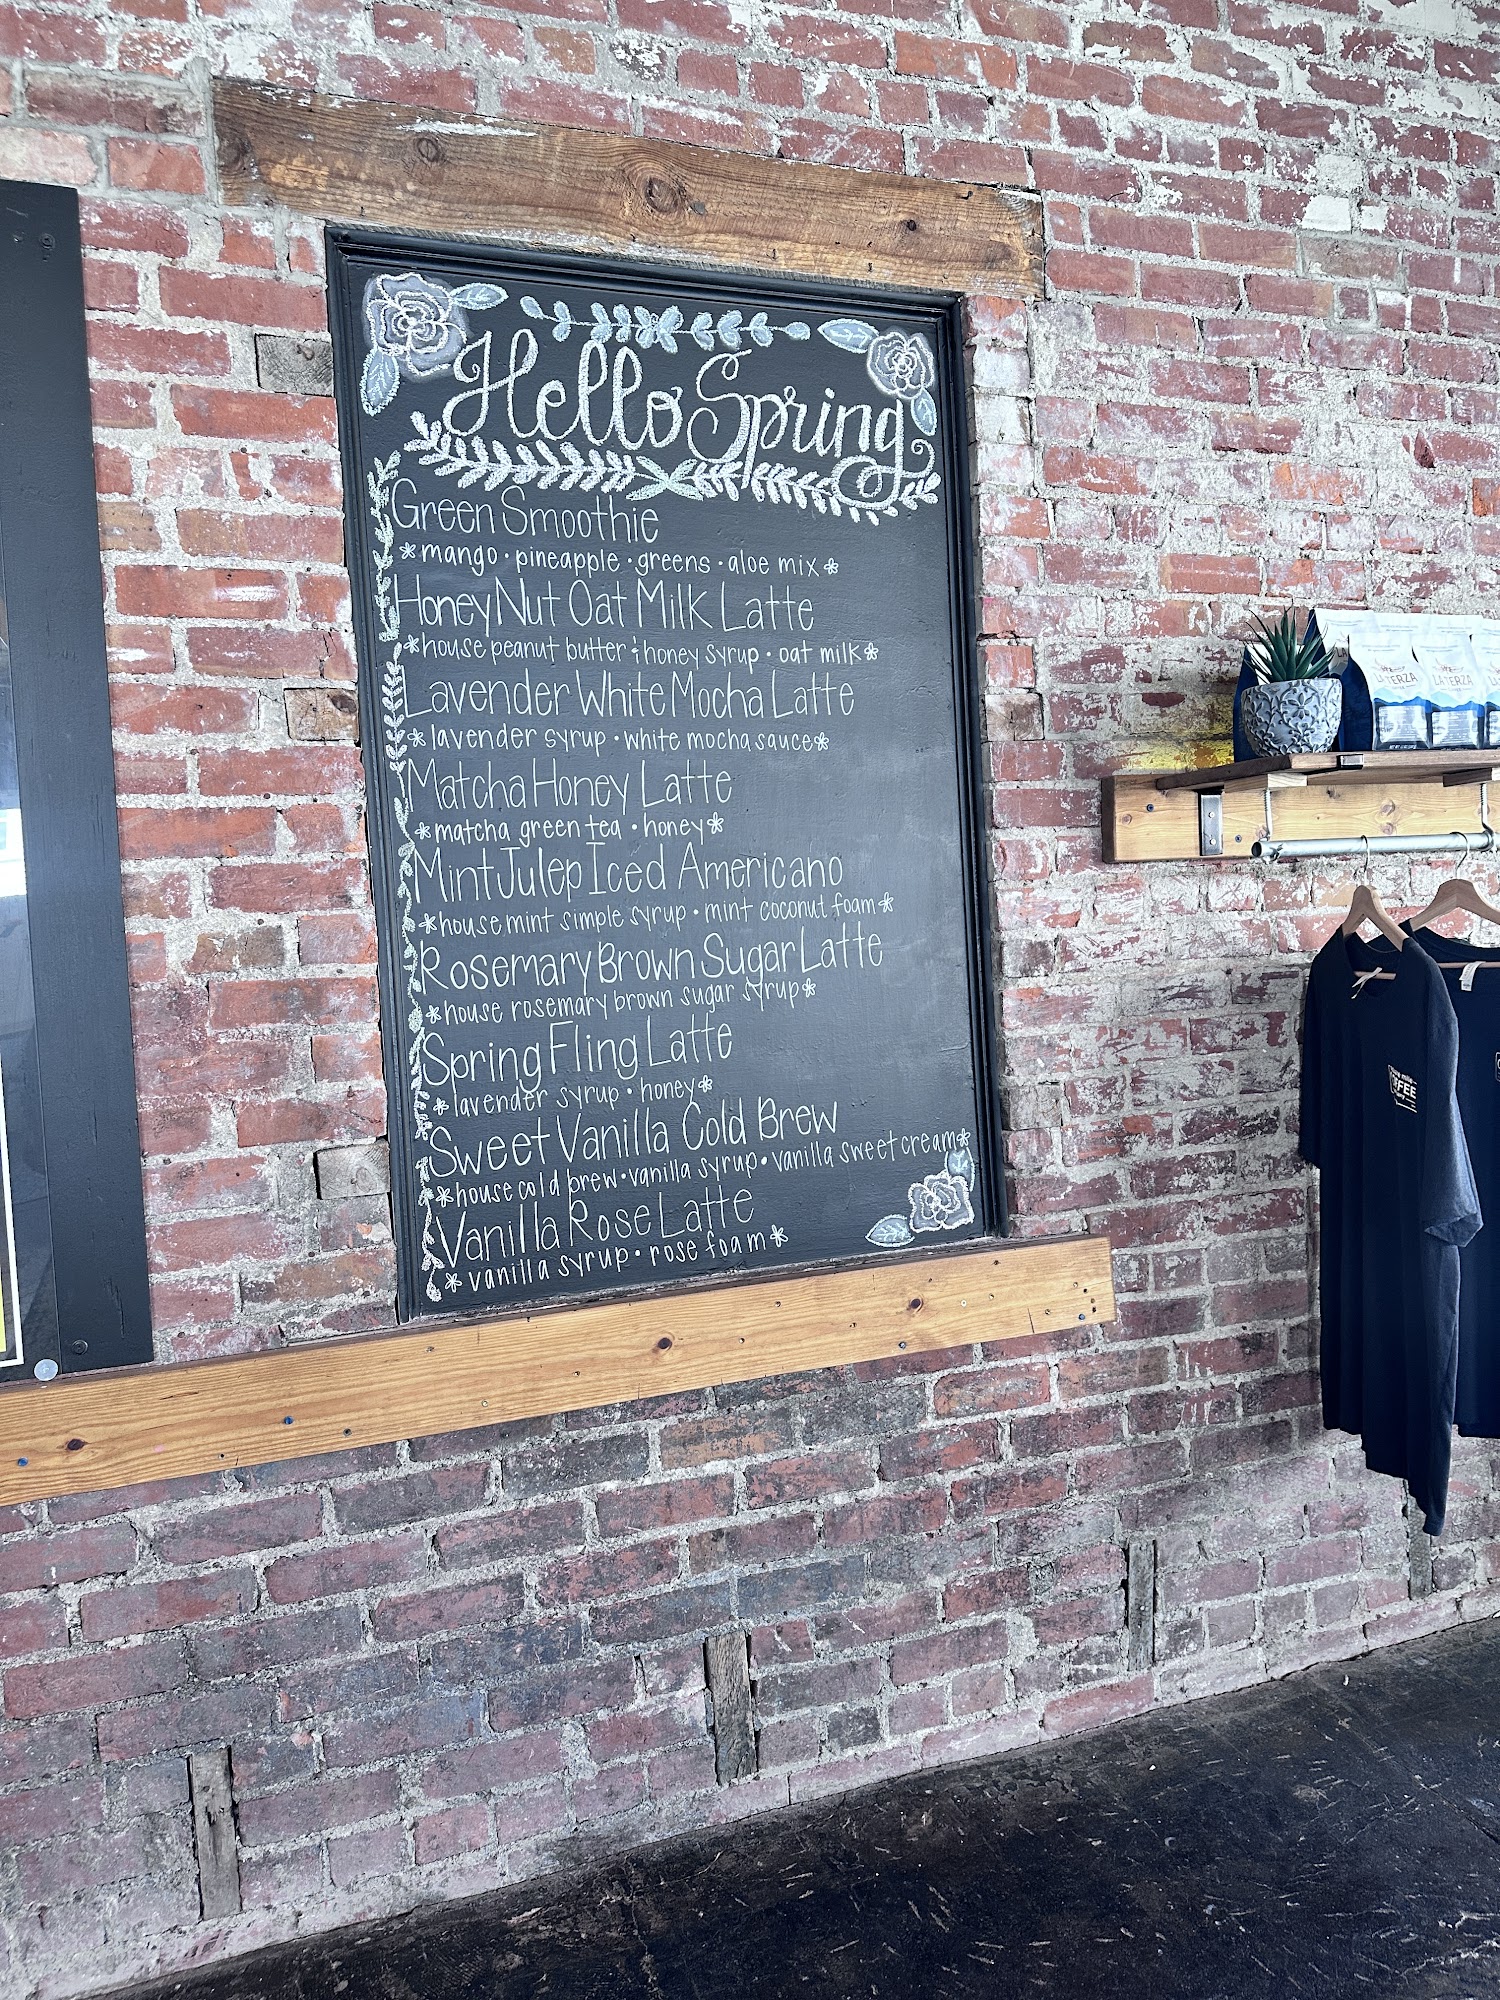 Hello Spring
Green Smoothie
*mango • pineapple • greens • aloe mix*
Honey Nut Oat Milk Latte
*house peanut butter & honey syrup • oat milk*
Lavender White Mocha Latte
*lavender syrup • white mocha sauce*
Matcha Honey Latte
*matcha green tea • honey*
Mint Julep Iced Americano
*house mint simple syrup • mint coconut foam*
Rosemary Brown Sugar Latte
*house rosemary brown sugar syrup*
Spring Fling Latte
*lavender syrup • honey*
Sweet Vanilla Cold Brew
*house cold brew • vanilla syrup • vanilla sweet cream*
Vanilla Rose Latte
*vanilla syrup • rose foam*
LATERZA
LATERZA